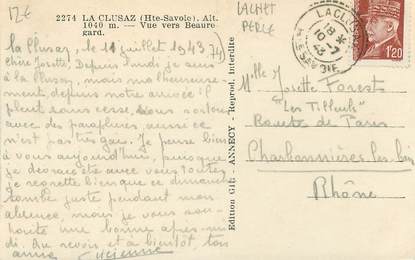 12€
CACHET
PERLE
2274 LA CLUSAZ (Hte-Savoie). Alt.
1040 m. — Vue vers Beaure-
gard.
La Clusaz, le 11 juillet 1943 (74)
Chère Josette, Depuis lundi je suis
à la Clusaz, mais malheureuse-
ment depuis notre arrivée il
pleut sans cesse. Nous sortons
avec des parapluies, aussi ce
n'est pas très gai. Je pense bien
à vous aujourd'hui, puisque
je devrais être avec vous toutes.
Je regrette bien que ce dimanche
tombe juste pendant mon
absence, mais je vous sou-
haite une bonne après-mi-
di. Au revoir et à bientôt, ton
amie
Edition Gil - ANNECY - Reprod. interdite
LA CLUSAZ
18
12-7
43
HTE SAVOIE
1F20
Mlle Josette Forest
"Les Tilleuls"
Route de Paris
Charbonnières-les-Bains
Rhône